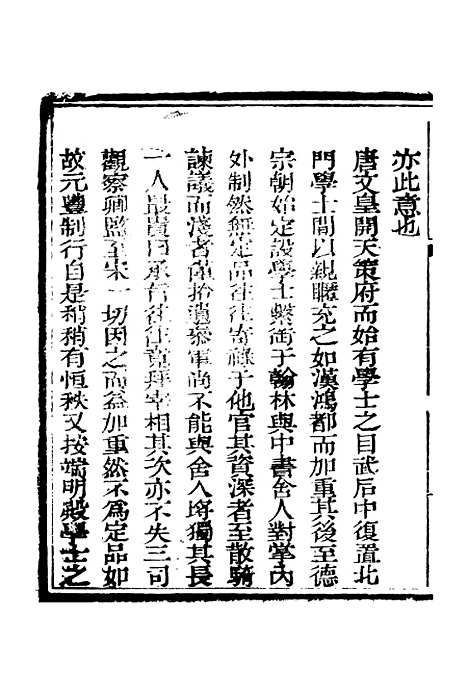 亦此意也
唐文皇開天策府而始有學士之目武后中復置北
門學士間以親暱充之如漢鴻都而加重其後至德
宗朝始定設學士繫銜于翰林與中書舍人對掌內
外制然無定品往往寄祿于他官其資深者至散騎
諫議而淺者僅拾遺參軍尚不能與舍人埒獨其長
一人最貴曰承旨往往竟拜宰相其次亦不失三司
觀察卿監至宋一切因之而益加重然不為定品如
故元豐制行自是稍稍有恒秩又按端明殿學士之